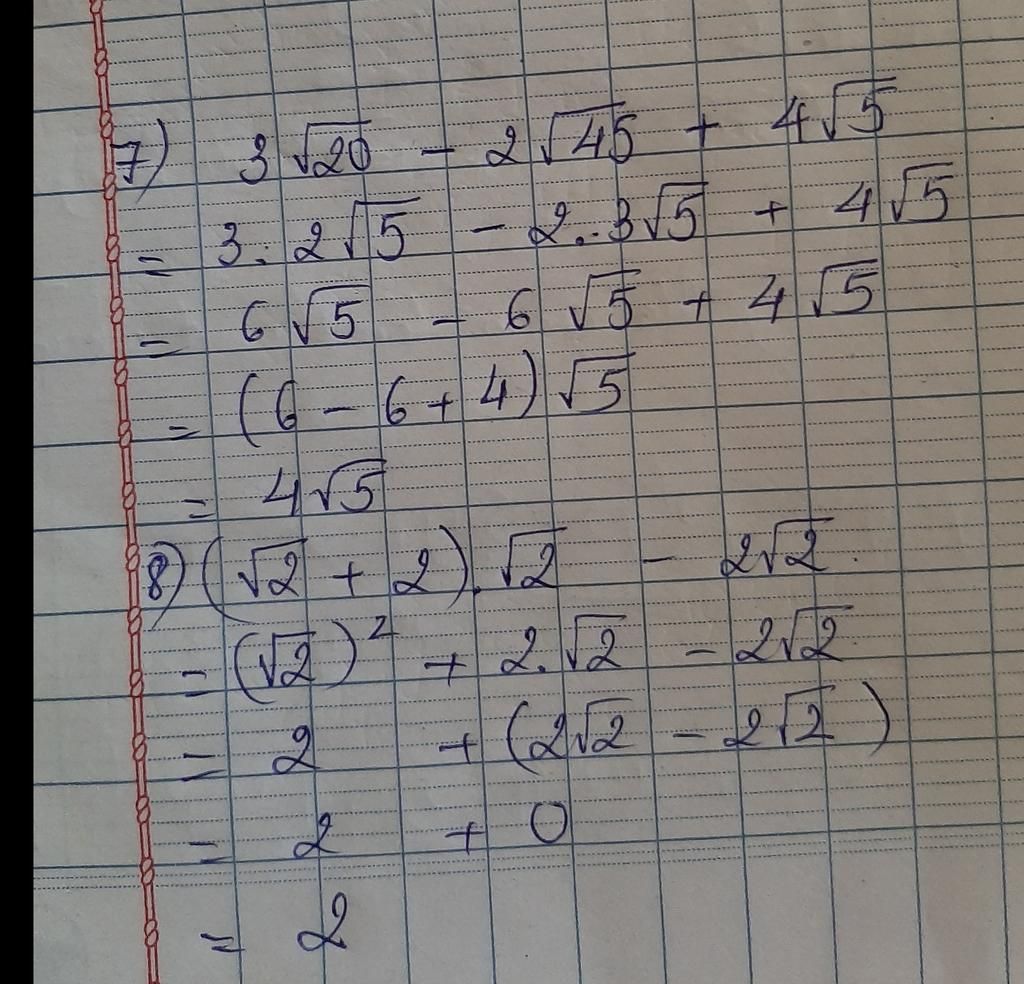 7) 3√20 - 2√45 + 4√5
= 3. 2√5 - 2.. 3√5 + 4√5
= 6√5 - 6√5 + 4√5
= (6 - 6 + 4)√5
= 4√5
8) (√2 + 2).√2 - 2√2.
= (√2)² + 2.√2 - 2√2
= 2 + (2√2 - 2√2)
= 2 + 0
= 2